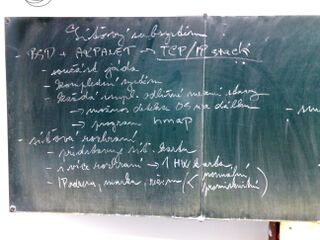 Síťový subsystém
- BSD + ARPANET → TCP/IP stack
- součást jádra
- komplexní systém
- každá impl. odlišné mezní stavy
→ možnost detekce OS na dálku
→ program nmap
- síťová rozhraní
- představuje síť. kartu
- více rozhraní → 1 HW karta
- IP adresa, maska, režim (< normální
promiskuitní)